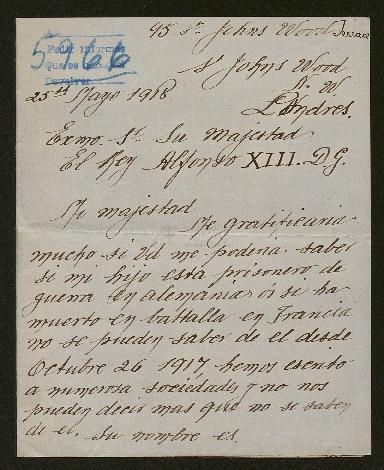 45 St. Johns Wood Terrace
St Johns Wood
N. W
Londres.
5966
Pedir informes
Devolver
25th Mayo 1918
Exmo. Sr. Su Majestad
El Rey Alfonso XIII. D G.
Mi majestad
Me gratificaria
mucho si Vd me poderia saber
si mi hijo esta prisonero de
guerra en alemania ó si ha
muerto en battalla en Francia
no se pueden saber de el desde
Octubre 26 1917, hemos escrito
a numerosa sociedades y no nos
pueden decir mas que no se saben
de el. Su nombre es